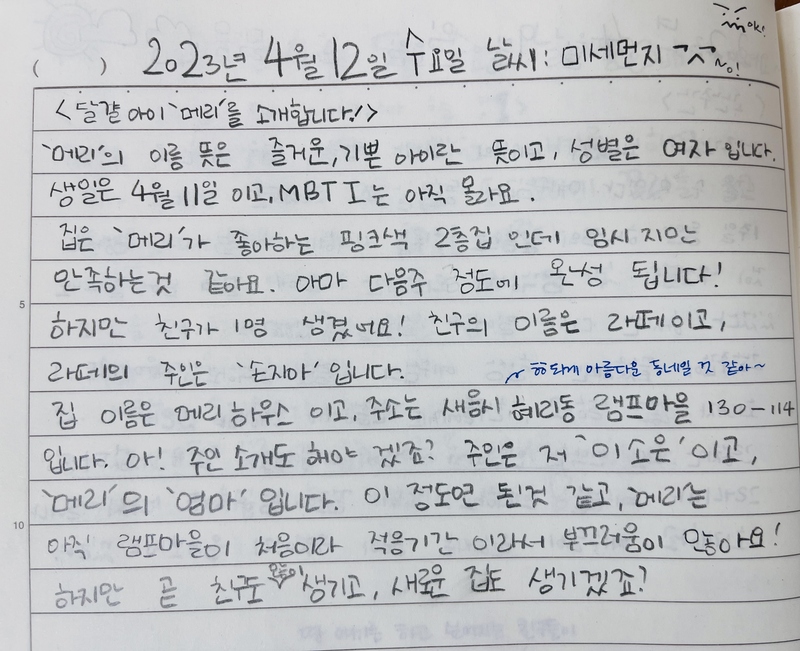 OK!
( ) 2023년 4월 12일 수요일 날씨: 미세먼지 ㅈㅈ~!
<달걀 아이 '메리'를 소개합니다!>
'메리'의 이름 뜻은 즐거운, 기쁜 아이란 뜻이고, 성별은 여자 입니다.
생일은 4월 11일 이고, MBTI는 아직 몰라요.
집은 '메리'가 좋아하는 핑크색 2층집 인데 임시 지만
만족하는것 같아요. 아마 다음주 정도에 완성 됩니다!
하지만 친구가 1명 생겼어요! 친구의 이름은 라떼이고,
라떼의 주인은 '손지아' 입니다.
환하게 아름다운 동네일 것 같아~
집 이름은 메리 하우스 이고, 주소는 새움시 혜리동 램프마을 130-114
입니다. 아! 주인 소개도 해야 겠죠? 주인은 저 '이소은' 이고,
'메리'의 '엄마' 입니다. 이 정도면 된것 같고, '메리'는
아직 램프마을이 처음이라 적응기간 이라서 부끄러움이 많아요!
하지만 곧 친구도 많이 생기고, 새로운 집도 생기겠죠?